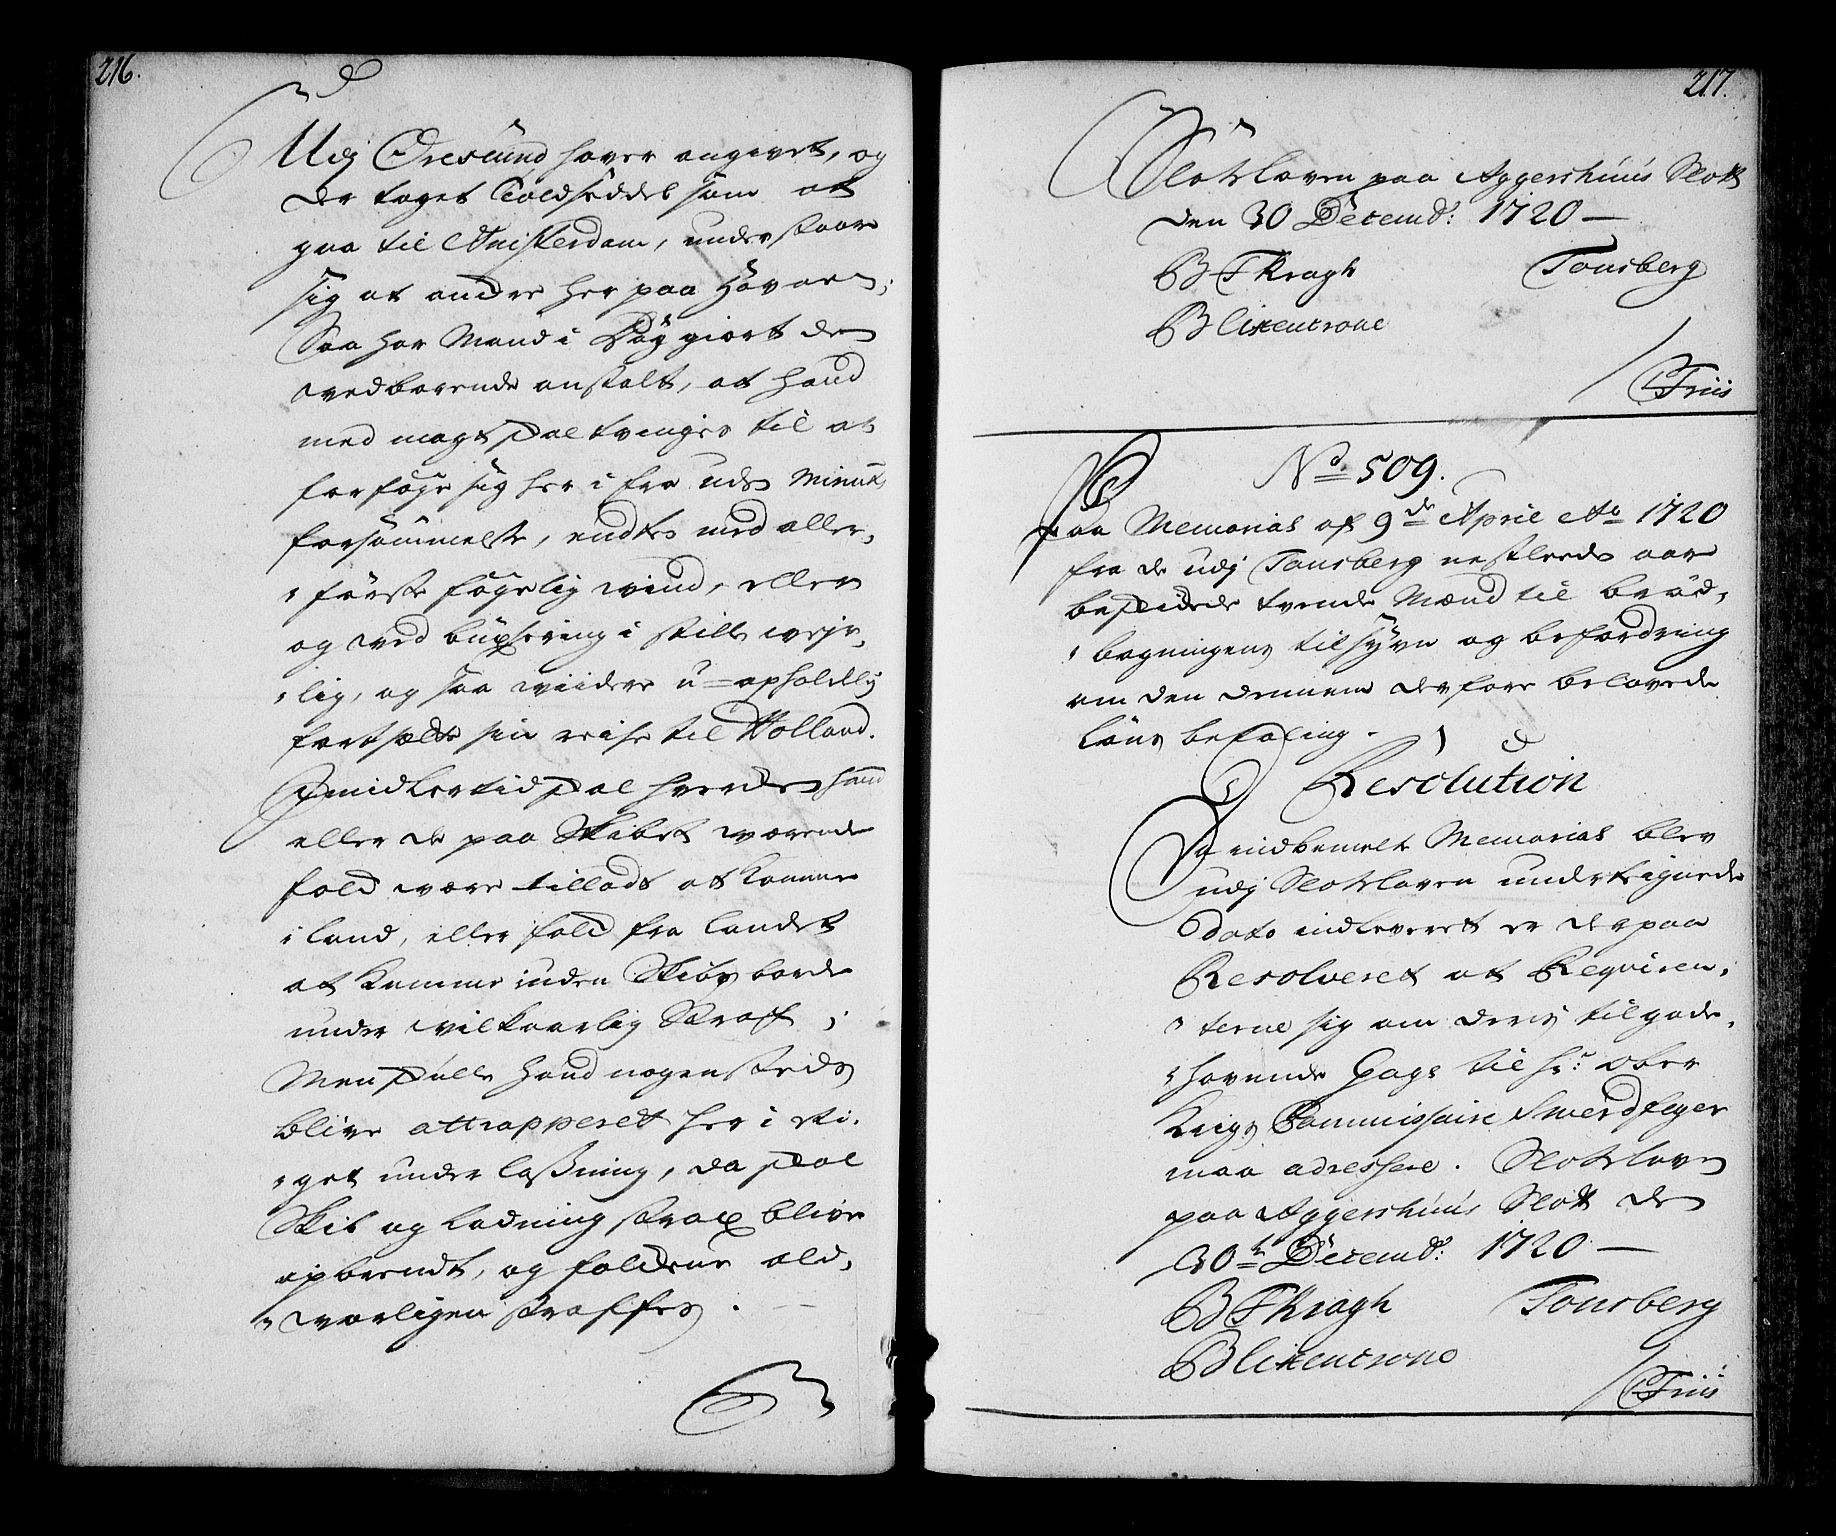 216.
Udj Öresund hafver angivet, og
der taget Toldseddel som at
gaa til Amsterdam, understaar
sig at andre her paa Hafvnen,
Saa har Mand i Dag giort den
vedbørende anstalt, at hand
med magt skal tvinges til at
forføge sig her i fra uden Minut,
forsømmelse, endten med aller,
første føgelig wind, eller
og ved buxering i stille vejr,
lig, og saa wiidere u-opholdlig
fortsætte sin reise til Holland.
Imidlertid skal hverken hand
eller de paa Skibet værende
folck være tilladt at komme
i land, eller folck fra landet
at komme inden Skibs borde
under vilkaarlig Straf,
Men skulle hand nogensteds
blive attrapperet her i Ri,
get under laßning, da skal
Skib og ladning strax blive
opbrendt, og folckene ald,
vorligen straffes.
217.
Slotsloven paa Aggershuus Slott
den 30 Decembr: 1720 —
B F Kragh Tonsberg
Blixencrone
/ C Friis
No 509.
Paa Memorial af 9de April Ao 1720
fra de udj Tonsberg nestleeden aar
beskickede tvende Mænd til bröd,
bagningens tilsyvn og befordring
om den dennem derfore belovede
löns betaling.
Resolution
Da indbemelte Memorial blev
udj Slotsloven undertegnede
Dato indleveret er derpaa
Resolveret at Requiren,
terne sig om deris tilgode,
hafvende Gage til hr: Ober
Krigs Commissaire Swerdfeger
maa adressere. Slotsloven
paa Aggershuus Slott den
30te Decembr: 1720 —
B F Kragh Tonsberg
Blixencrone
/ C Friis